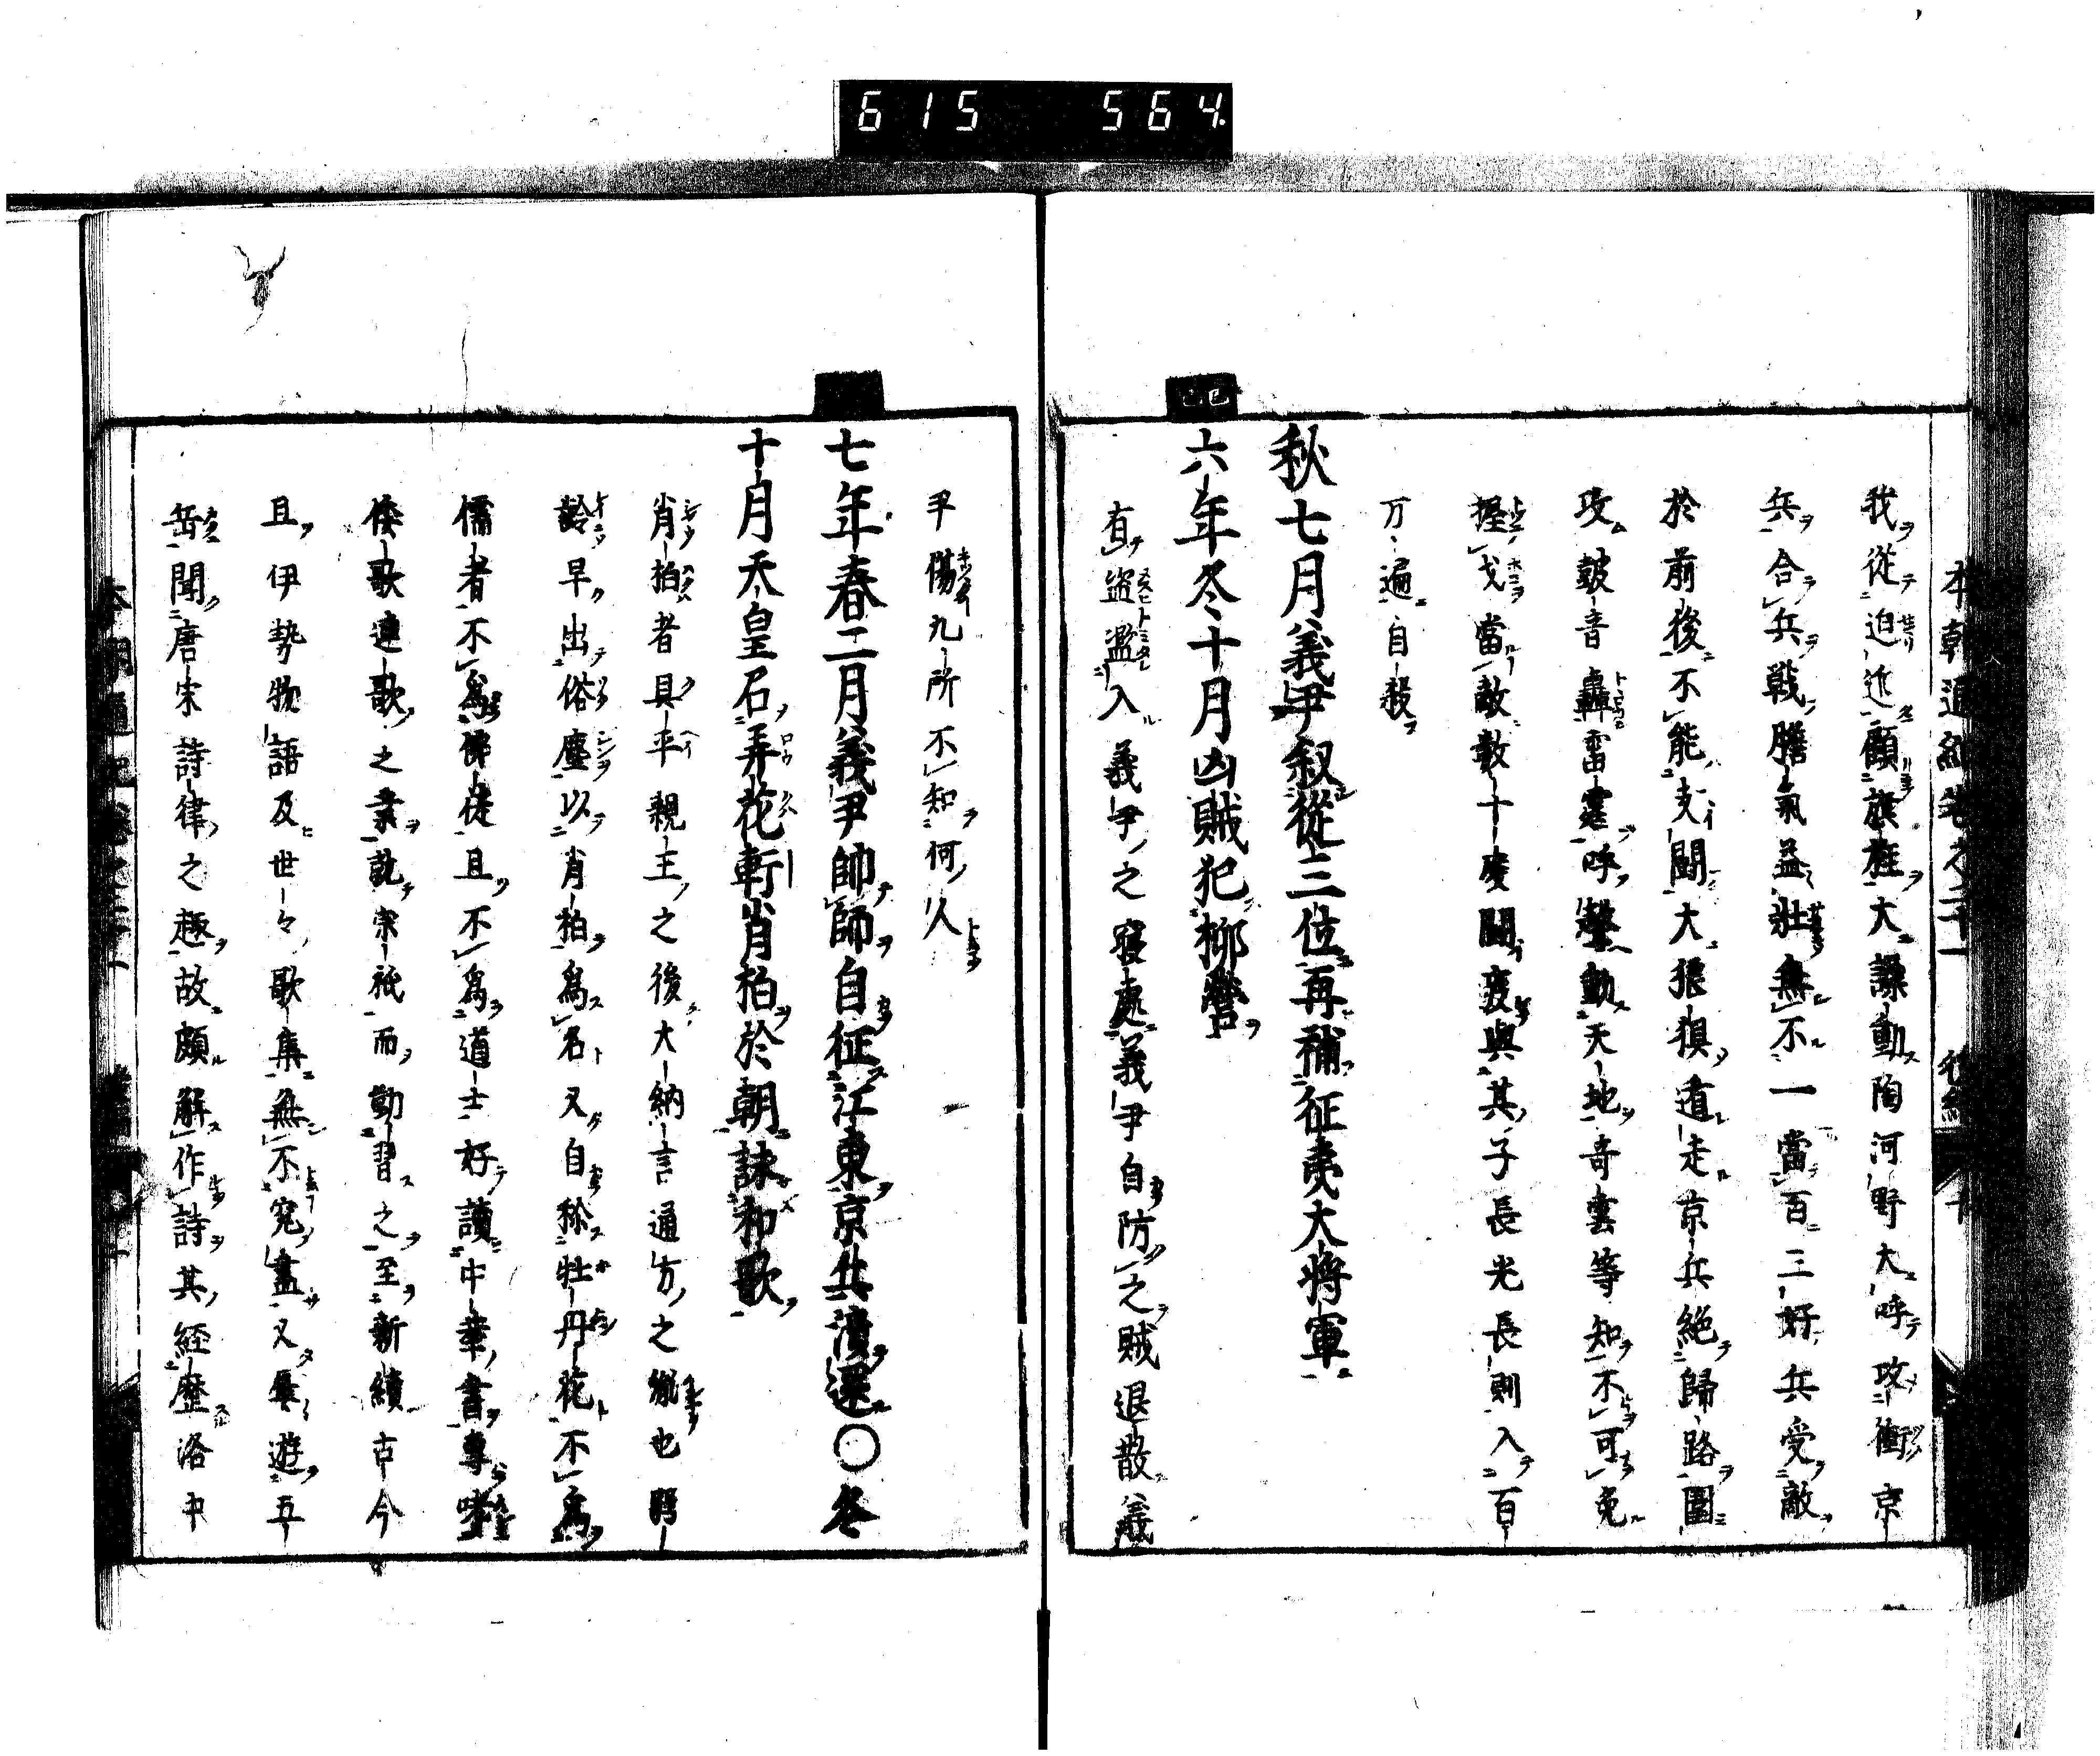 615 564
我從迫近顧旗旌大譟動陶河野大呼攻衝京
兵合兵戰膽氣益壯無不一當百三好兵受敵
於前後不能支鬪大狼狽遁走京兵絕歸路圍
攻鼓音轟雷霆呼聲動天地奇雲等知不可免
握戈當敵數十度鬪疲與其子長光長則入百
万遍自殺
秋七月義尹叙從三位再補征夷大將軍
己巳
六年冬十月凶賊犯柳營
有盜濫入義尹之寢處義尹自防之賊退散義
尹傷九所不知何人
七年春二月義尹帥師自征江東京兵潰還〇冬
十月天皇召弄花軒肖柏於朝詠和歌
肖柏者具平親王之後大納言通方之也
齡早出俗塵以肖柏爲名又自稱牡丹花不爲
儒者不爲佛徒且不爲道士好讀中華書專
倭歌連歌之業就宗祇而勤習之至新續古今
且伊勢物語及世々歌集無不究盡又屢遊五
岳聞唐宋詩律之趣故頗解作詩其經歷洛中